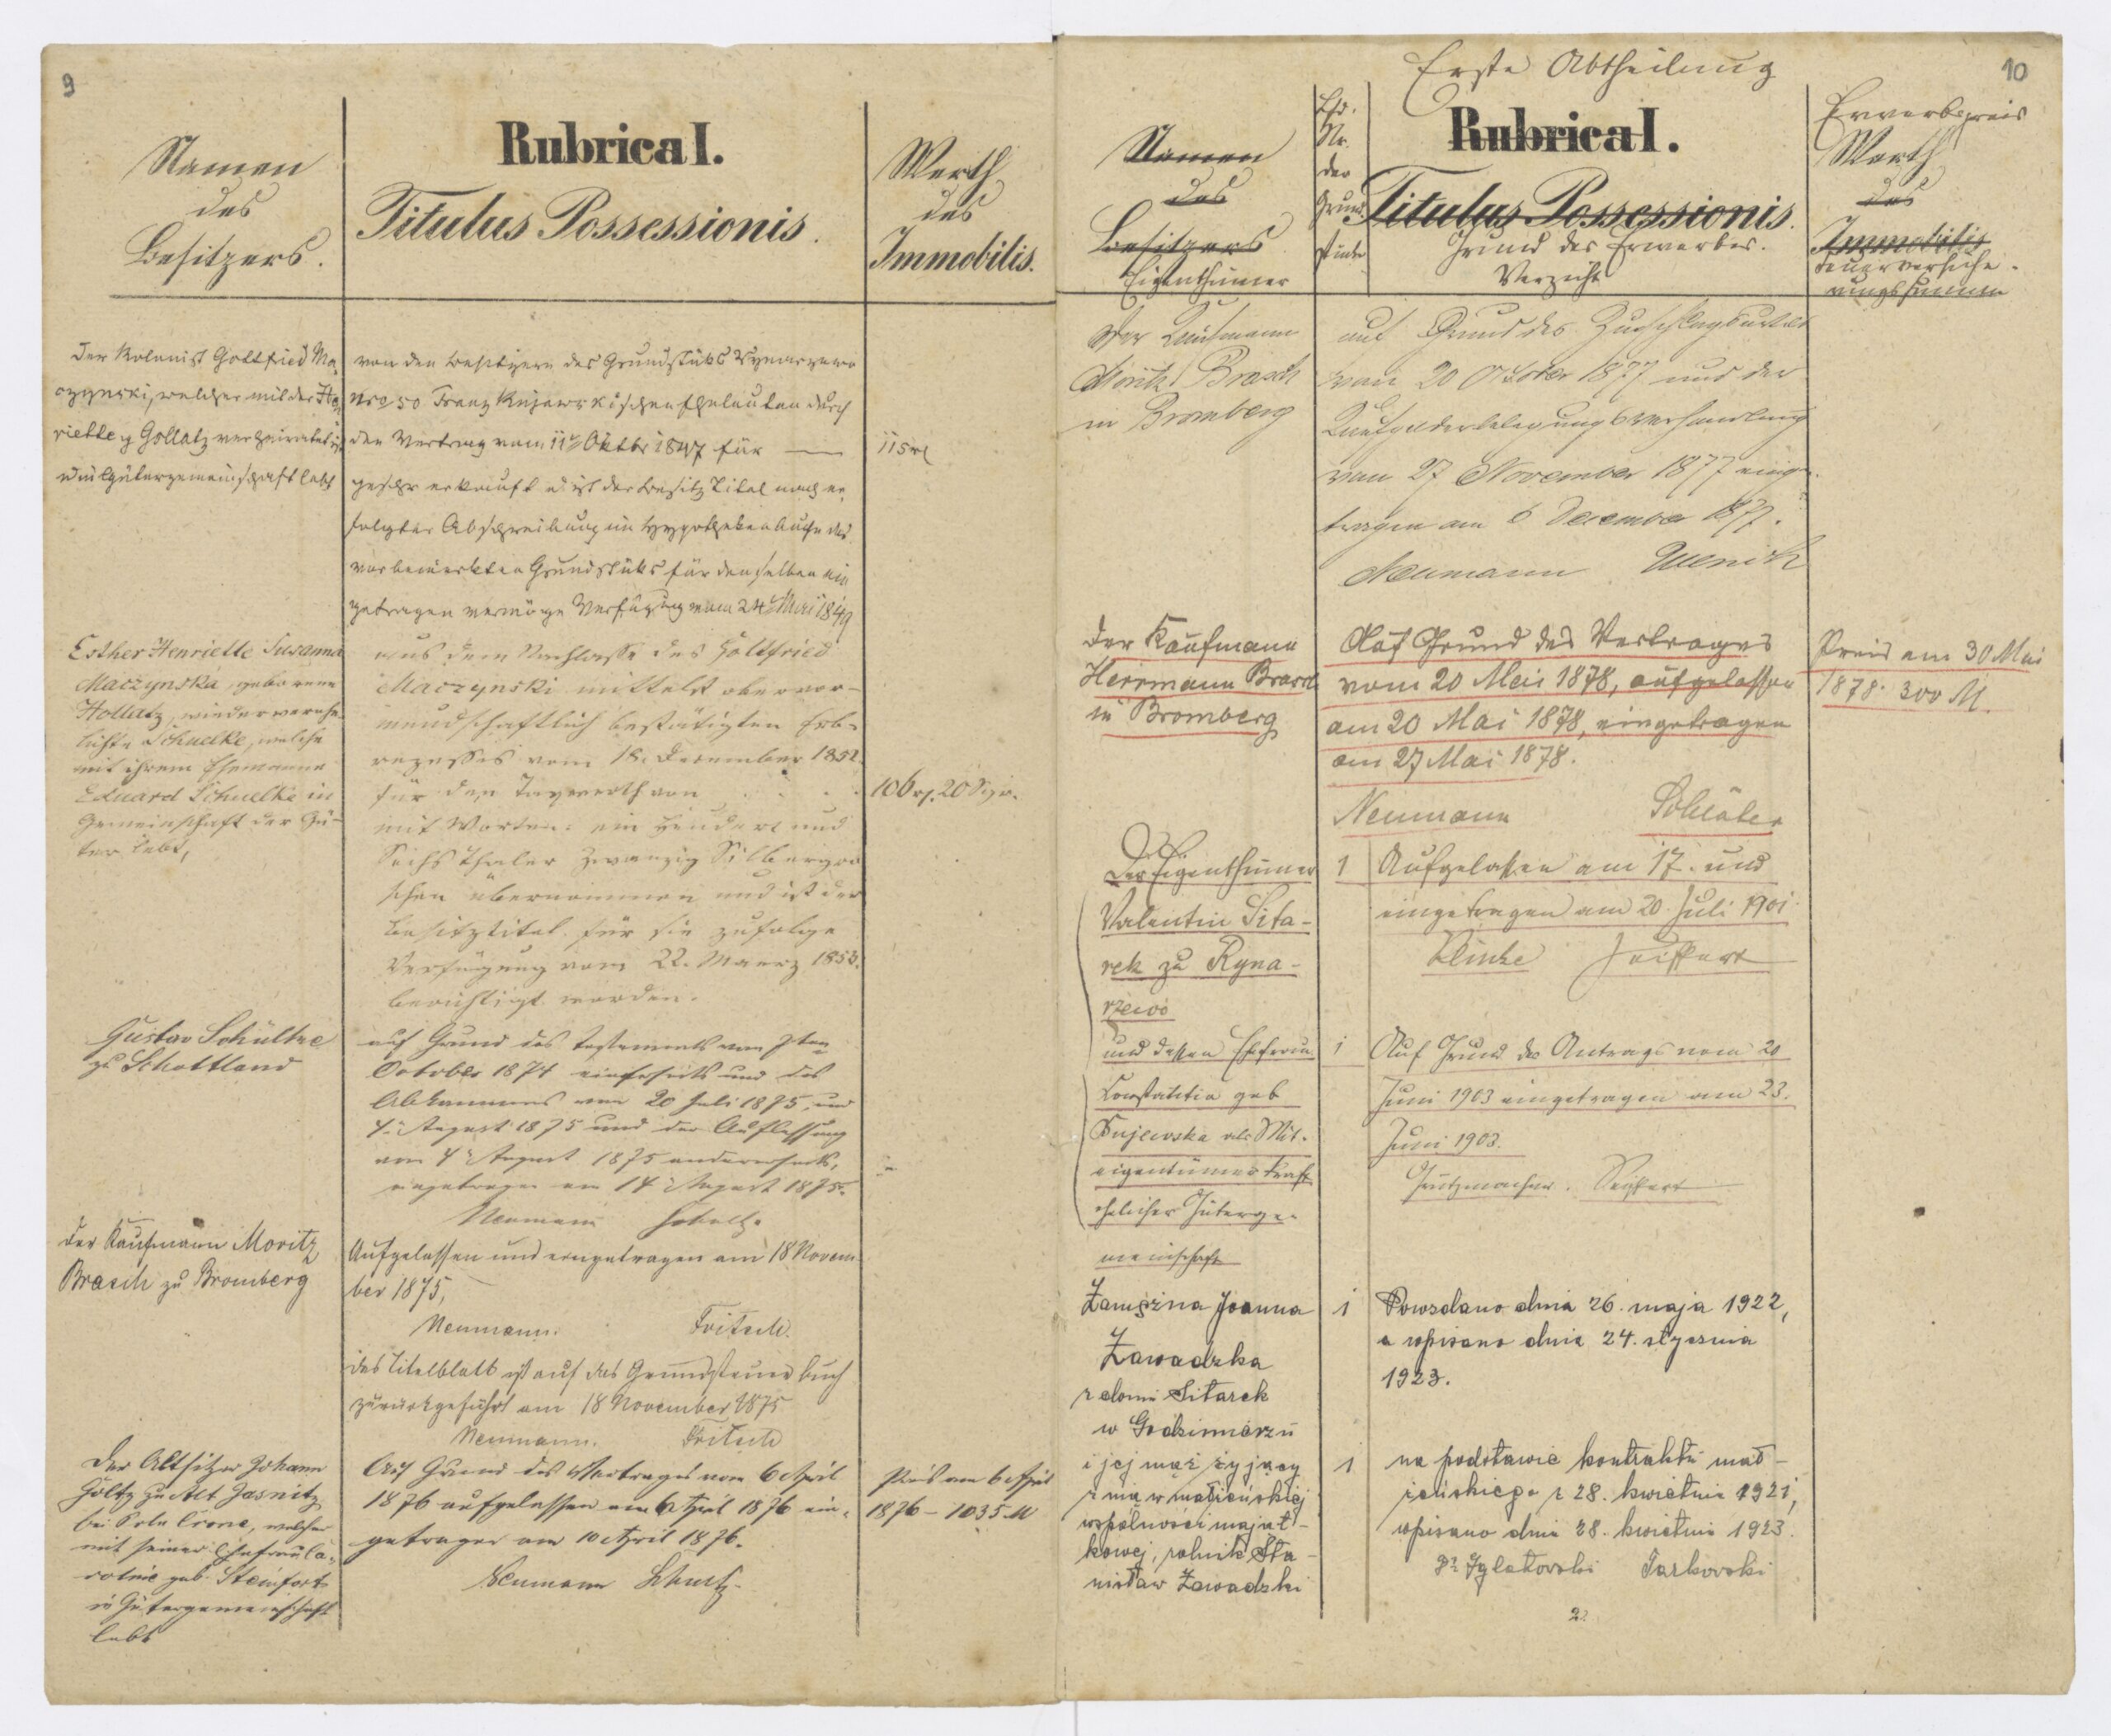 9
Namen
des
Besitzers.
Rubrica I.
Titulus Possessionis.
Werth
des
Immobilis.
Der Kolonist Gottfried Ma-
czynski, welcher mit der Hen-
riette g Gollatz verheiratet ist
u in Gütergemeinschaft lebt
von den Besitzern des Grundstüks Rynarzewo
Nro 50 Franz Kujawskischen Eheleuten durch
den Vertrag vom 11t Oktbr 1847 für —
erkauft u. ist der Besitztitel nach er
folgter Abschreibung im Hypothekenbuche des
vorbemerkten Grundstüks für denselben ein
getragen vermöge Verfügung vom 24t Mai 1849
115
Esther Henriette Susanna
Maczynska, geborene
Hollatz, wiederverehe-
lichte Schuelke, welche
mit ihrem Ehemanne
Eduard Schuelke in
Gemeinschaft der Gü-
ter lebt,
aus dem Nachlasse des Gottfried
Maczynski mittelst obervor-
mundschaftlich bestätigten Erb-
rezesses vom 18. December 1852
für den Taxwerth von . . .
mit Worten: ein Hundert und
Sechs Thaler Zwanzig Silbergro
schen übernommen und ist der
Besitztitel für sie zufolge
Verfügung vom 22. Maerz 1853.
berichtigt worden.
106 rt. 20 Sgr.
Gustav Schültke
zu Schottland
auf Grund des Testaments vom 7ten
October 1874 einerseits und des
Abkommens vom 20 Juli 1875 und
4. August 1875 und der Auflassung
vom 4 August 1875 andererseits,
eingetragen am 14 August 1875.
Neumann
Der Kaufmann Moritz
Brasch zu Bromberg
Aufgelassen und eingetragen am 18 Novem-
ber 1875,
Neumann. Fritsch.
das Titelblatt ist auf das Grundsteuerbuch
zurückgeführt am 18 November 1875
Neumann. Fritsch
Der Altsitzer Johann
Holtz zu Alt Jasnitz
bei Poln Crone, welcher
mit seiner Ehefrau Ca-
roline geb. Steinfort
in Gütergemeinschaft
lebt
Auf Grund des Vertrages vom 6 April
1876 aufgelassen am 6 April 1876 ein-
getragen am 10 April 1876.
Neumann Schultz.
Preis am 6 April
1876 – 1035 M
10
Erste Abtheilung
Namen
des
Besitzers
Eigenthümer
Lfd.
Nr.
der
Grund-
stücke
Rubrica I.
Titulus Possessionis.
Grund des Erwerbes.
Verzicht
Erwerbspreis
Werth
des
Immobilis
Feuerversiche-
rungssumme
Der Kaufmann
Moritz Brasch
in Bromberg
auf Grund des Zuschlagsurtels
vom 20 October 1877 und der
Kaufgelderbelegungsverhandlung
vom 27 November 1877 einge-
tragen am 6 December 1877.
Neumann
Der Kaufmann
Herrmann Brasch
in Bromberg
Auf Grund des Vertrages
vom 20 Mai 1878, aufgelassen
am 20 Mai 1878, eingetragen
am 27 Mai 1878.
Neumann
Preis am 30 Mai
1878: 300 M.
Der Eigenthümer
Valentin Sita-
rek zu Ryna-
rzewo
1
Aufgelassen am 17. und
eingetragen am 20. Juli 1901.
Seiffert
und dessen Ehefrau
Constantia geb
Kujewska als Mit-
eigentümer kraft
ehelicher Güterge-
meinschaft
1
Auf Grund des Antrags vom 20
Juni 1903 eingetragen am 23.
Juni 1903.
Grützmacher. Seiffert
Zamężna Joanna
Zawadzka
z domu Sitarek
w Godzimierzu
1
Powzdano dnia 26. maja 1922,
a wpisano dnia 24. stycznia
1923.
i jej mąż żyjący
z nią w małżeńskiej
wspólności mająt-
kowej, rolnik Sta-
nisław Zawadzki
1
na podstawie kontraktu mał-
żeńskiego z 28. kwietnia 1921,
wpisano dnia 28. kwietnia 1923.